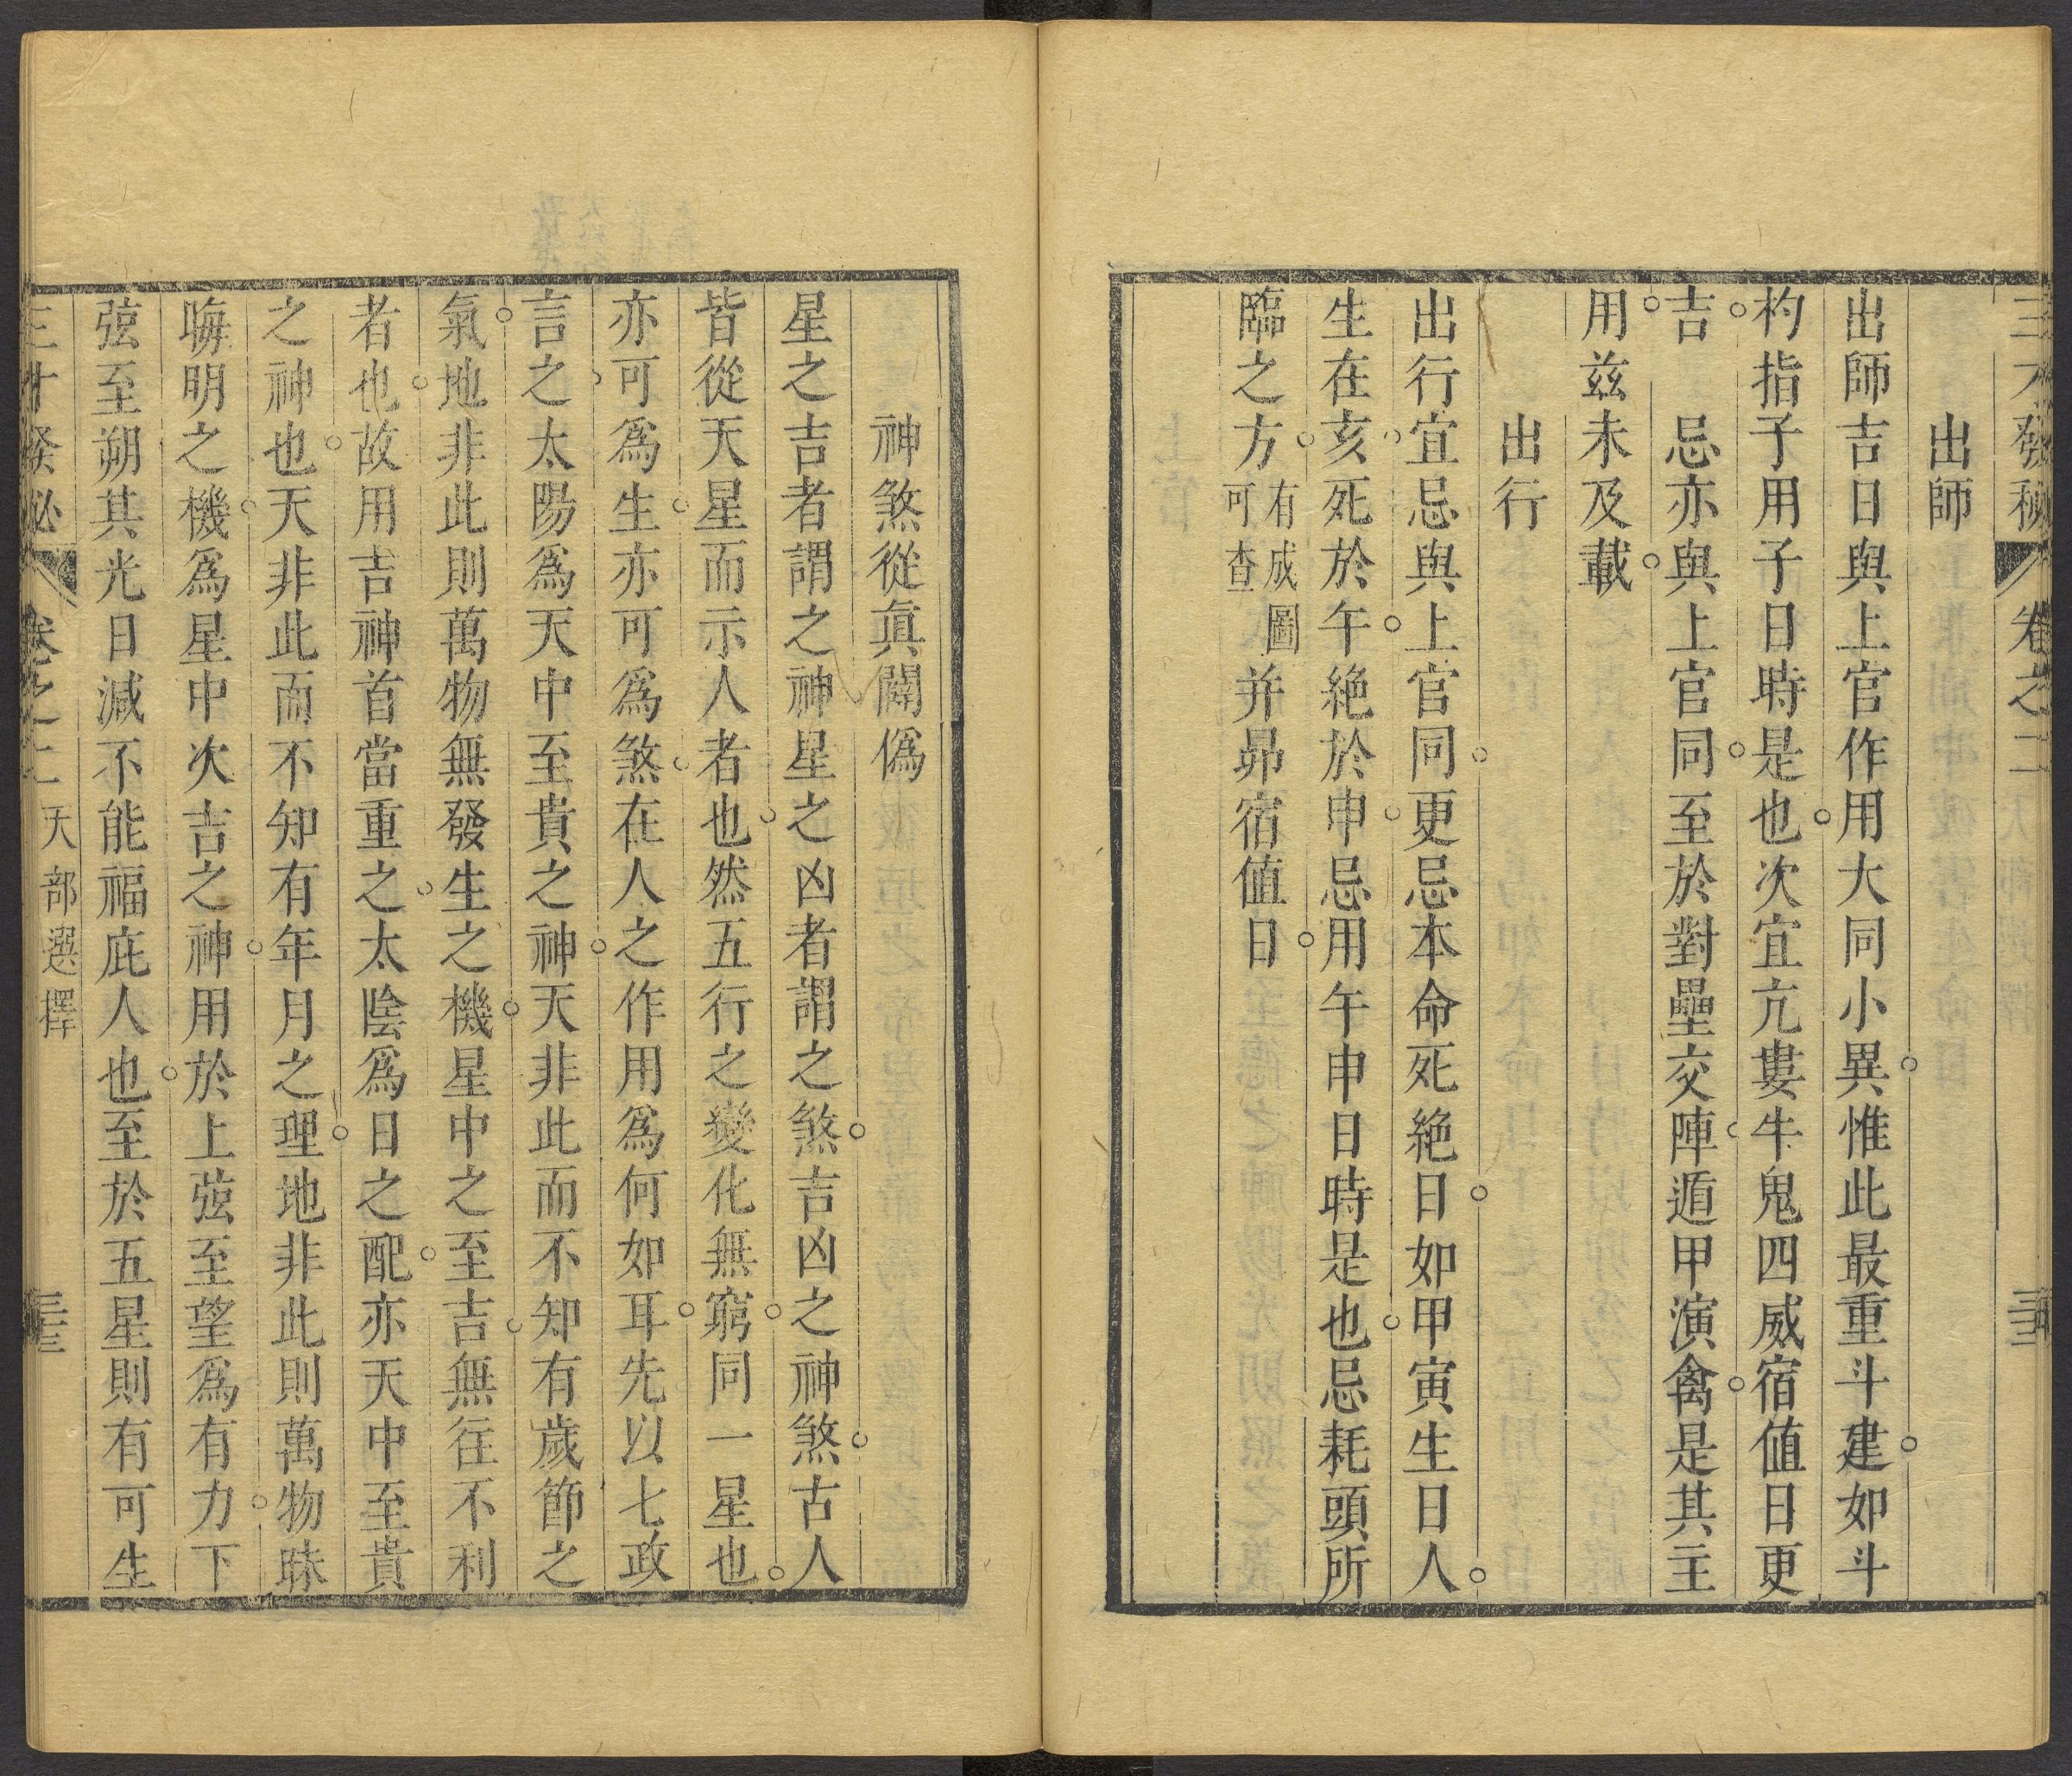 三才發秘 卷之二
出師
出師吉日與上官作用大同小異惟此最重斗建如斗
杓指子用子日時是也次宜亢婁牛鬼四威宿値日更
吉　忌亦與上官同至於對壘交陣遁甲演禽是其主
用茲未及載
出行
出行宜忌與上官同更忌本命死絶日如甲寅生日人
生在亥死於午絶於申忌用午申日時是也忌耗頭所
臨之方有成圖可查并昴宿値日
神煞從眞闢僞
星之吉者謂之神星之凶者謂之煞吉凶之神煞古人
皆從天星而示人者也然五行之變化無窮同一星也
亦可爲生亦可爲煞在人之作用爲何如耳先以七政
言之太陽爲天中至貴之神天非此而不知有歲節之
氣地非此則萬物無發生之機星中之至吉無往不利
者也故用吉神首當重之太陰爲日之配亦天中至貴
之神也天非此而不知有年月之理地非此則萬物昧
晦明之機爲星中次吉之神用於上弦至望爲有力下
弦至朔其光日減不能福庇人也至於五星則有可生
三才發秘 卷之二 天部選擇